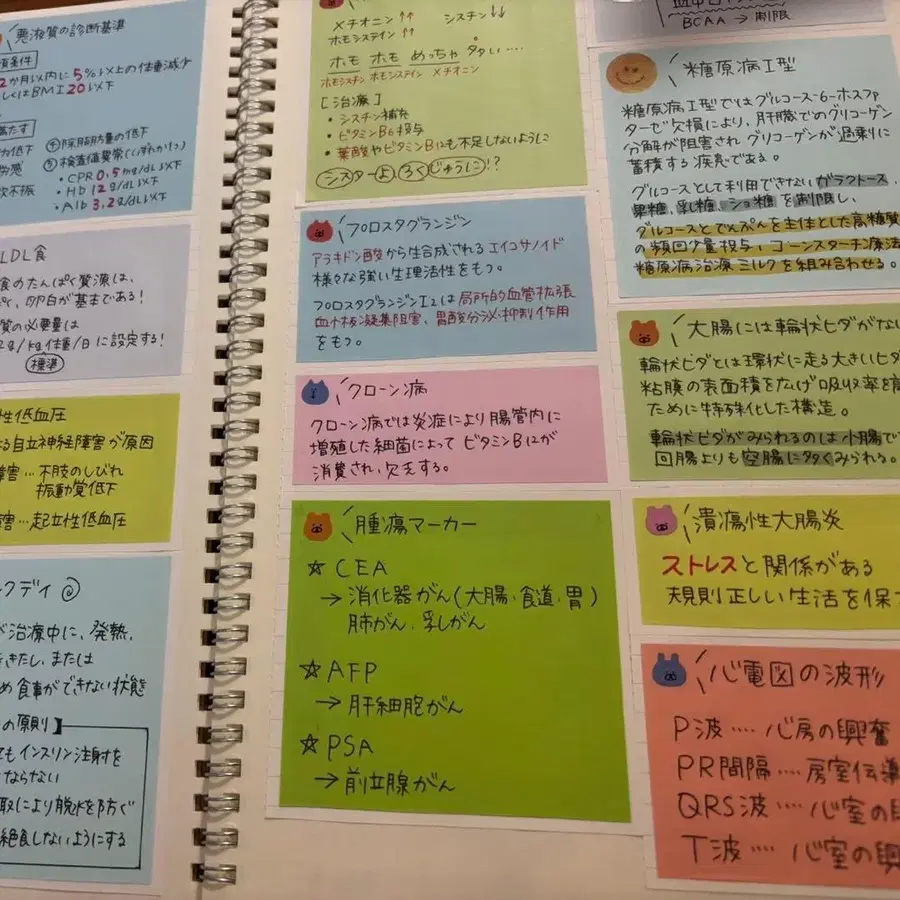 悪液質の診断基準
須条件
2か月以内に5%以上の体重減少
しくはBMI20以下
満たす
④除脂肪量の低下
⑤検査値異常(いずれか1つ)
・CPR 0.5mg/dL以上
・Hb 12g/dL以下
・Alb 3.2g/dL以下
力低下
労感
欲不振
LDL食
食のたんぱく質源は、
卵白が基本である!
質の必要量は
2g/kg体重/日に設定する!
標準
性低血圧
る自立神経障害が原因
障害…下肢のしびれ
振動覚低下
害…起立性低血圧
クデイ@
が治療中に、発熱、
きたし、または
め食事ができない状態
の原則】
てもインスリン注射を
ならない
取により脱水を防ぐ
絶食しないようにする
メチオニン↑↑ シスチン↓↓
ホモシステイン↑↑
ホモ ホモ めっちゃ 多い‥‥
ホモシスチン ホモシステイン メチオニン
[治療]
・シスチン補充
・ビタミンB6投与
・葉酸やビタミンB12も不足しないように
シスターよ、ろくじゅうに!?
プロスタグランジン
アラキドン酸から生合成されるエイコサノイド
様々な強い生理活性をもつ。
プロスタグランジンI2は局所的血管拡張
血小板凝集阻害、胃酸分泌抑制作用
をもつ。
クローン病
クローン病では炎症により腸管内に
増殖した細菌によってビタミンB12が
消費され、欠乏する。
腫瘍マーカー
☆CEA
→消化器がん(大腸・食道・胃)
肺がん、乳がん
☆AFP
→肝細胞がん
☆PSA
→前立腺がん
BCAA→制限
糖原病I型
糖原病I型ではグルコース-6-ホスファ
ターゼ欠損により、肝臓でのグリコーゲン
分解が阻害されグリコーゲンが過剰に
蓄積する疾患である。
グルコースとして利用できないガラクトース、
果糖、乳糖、ショ糖を制限し、
グルコースとでんぷんを主体とした高糖質
の頻回少量投与、コーンスターチ療法
糖原病治療ミルクを組み合わせる。
大腸には輪状ヒダがな
輪状ヒダとは環状に走る大きいヒダ
粘膜の表面積を広げ吸収率を高
ために特殊化した構造。
輪状ヒダがみられるのは小腸で
回腸よりも空腸に多くみられる。
潰瘍性大腸炎
ストレスと関係がある
規則正しい生活を保
心電図の波形
P波‥‥心房の興奮
PR間隔‥‥房室伝導
QRS波‥‥心室の
T波‥‥心室の興